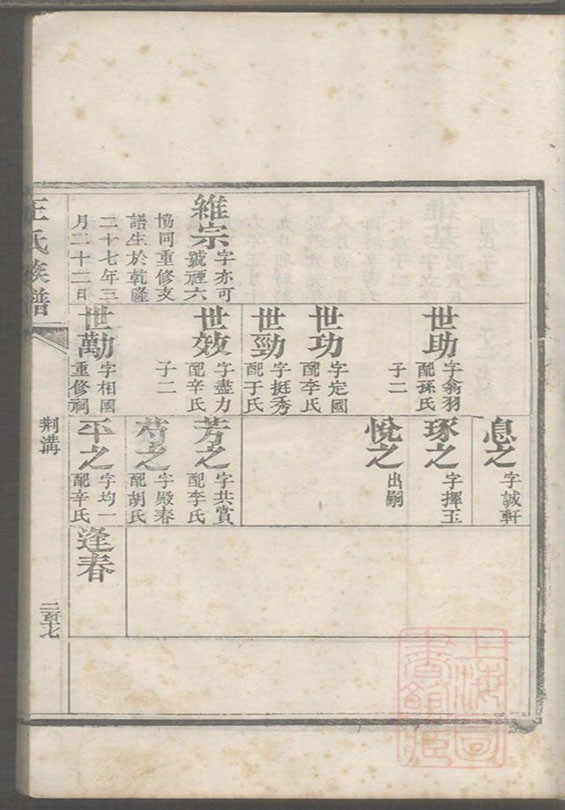 維宗
字亦可
號禋六
協同重修支
譜生於乾隆
二十七年三
月二十二日
世助
字翕羽
配孫氏
子二
世功
字定國
配李氏
世勁
字挺秀
配于氏
世效
字盡力
配辛氏
子二
世勷
字相國
重修祠
息之
字誠軒
琢之
字揮玉
悅之
出嗣
芳之
字共賞
配李氏
芍之
字殿春
配胡氏
平之
字均一
配辛氏
逢春
王氏族譜
荆溝
二百七
上海圖書館藏